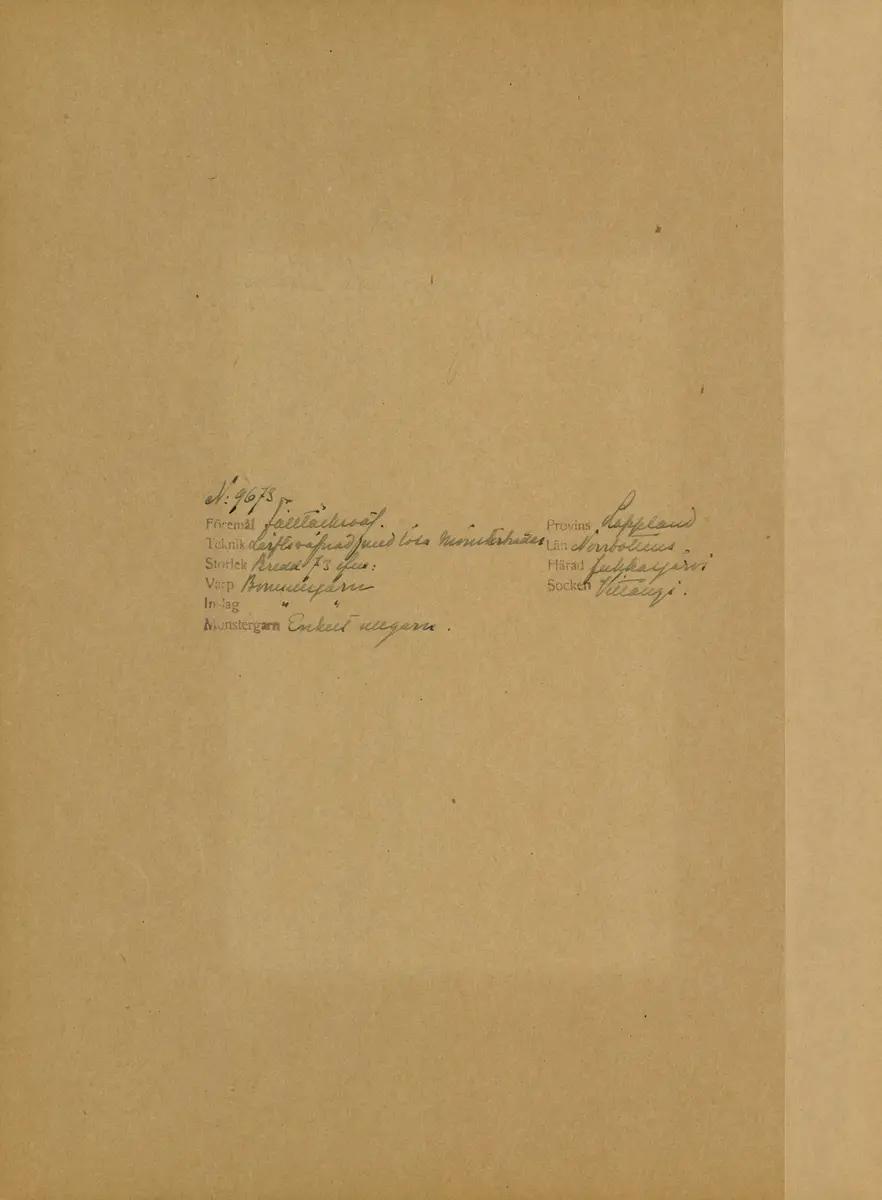 N: 9673
Föremål fälltäcksväf.
Teknik Lärftsväfnad med lösa mönsterhvälfvor
Storlek Bredd 73 cm:
Varp Bomullsgarn
Inslag " "
Mönstergarn Enkelt ullgarn.
Provins Lappland
Län Norrbottens.
Härad Jukkasjärvi
Socken Vittangi.